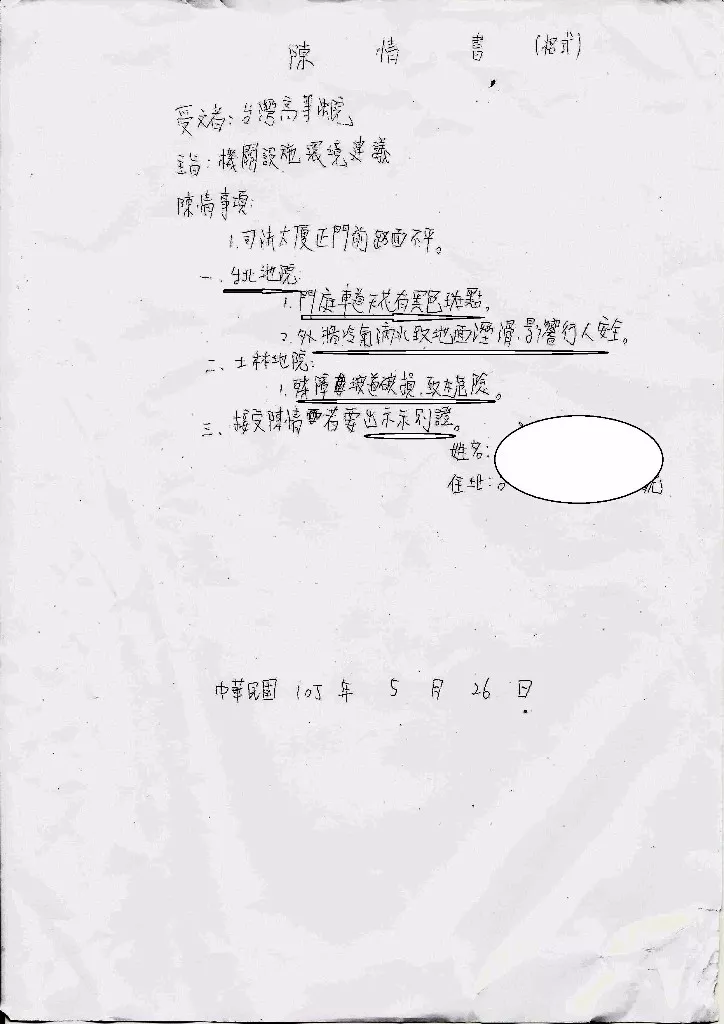 陳情書 (格式)
受文者:台灣高等法院
主旨:機關設施環境建議
陳情事項:
1.司法大廈正門前路面不平。
一、台北地院:
1.門庭車道天花有黑色斑點。
2.外牆冷氣滴水致地面溼滑,影響行人安全。
二、士林地院:
1.殘障坡道破損,致生危險。
三、接受陳情者要出示示別證。
姓名:
住址:
中華民國 105 年 5 月 26 日